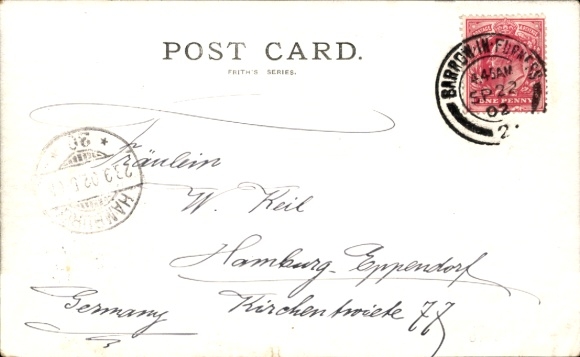 POST CARD.
FRITH'S SERIES.
BARROW-IN-FURNESS
8.45AM
SP 22
02
ONE PENNY
Fräulein
W. Keil
Hamburg-Eppendorf
Germany Kirchentwiete 77